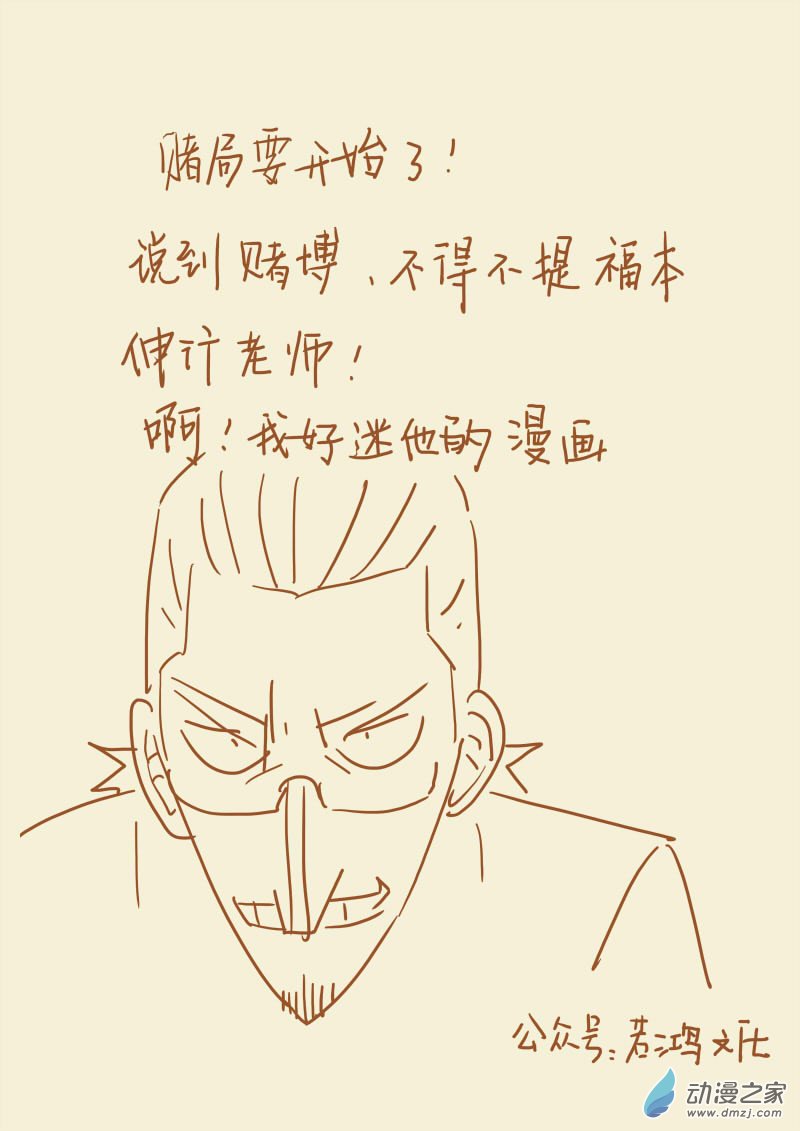 赌局要开始了!
说到赌博、不得不提福本
伸行老师!
啊!我好迷他的漫画
公众号:若鸿文化
动漫之家
www.dmzj.com